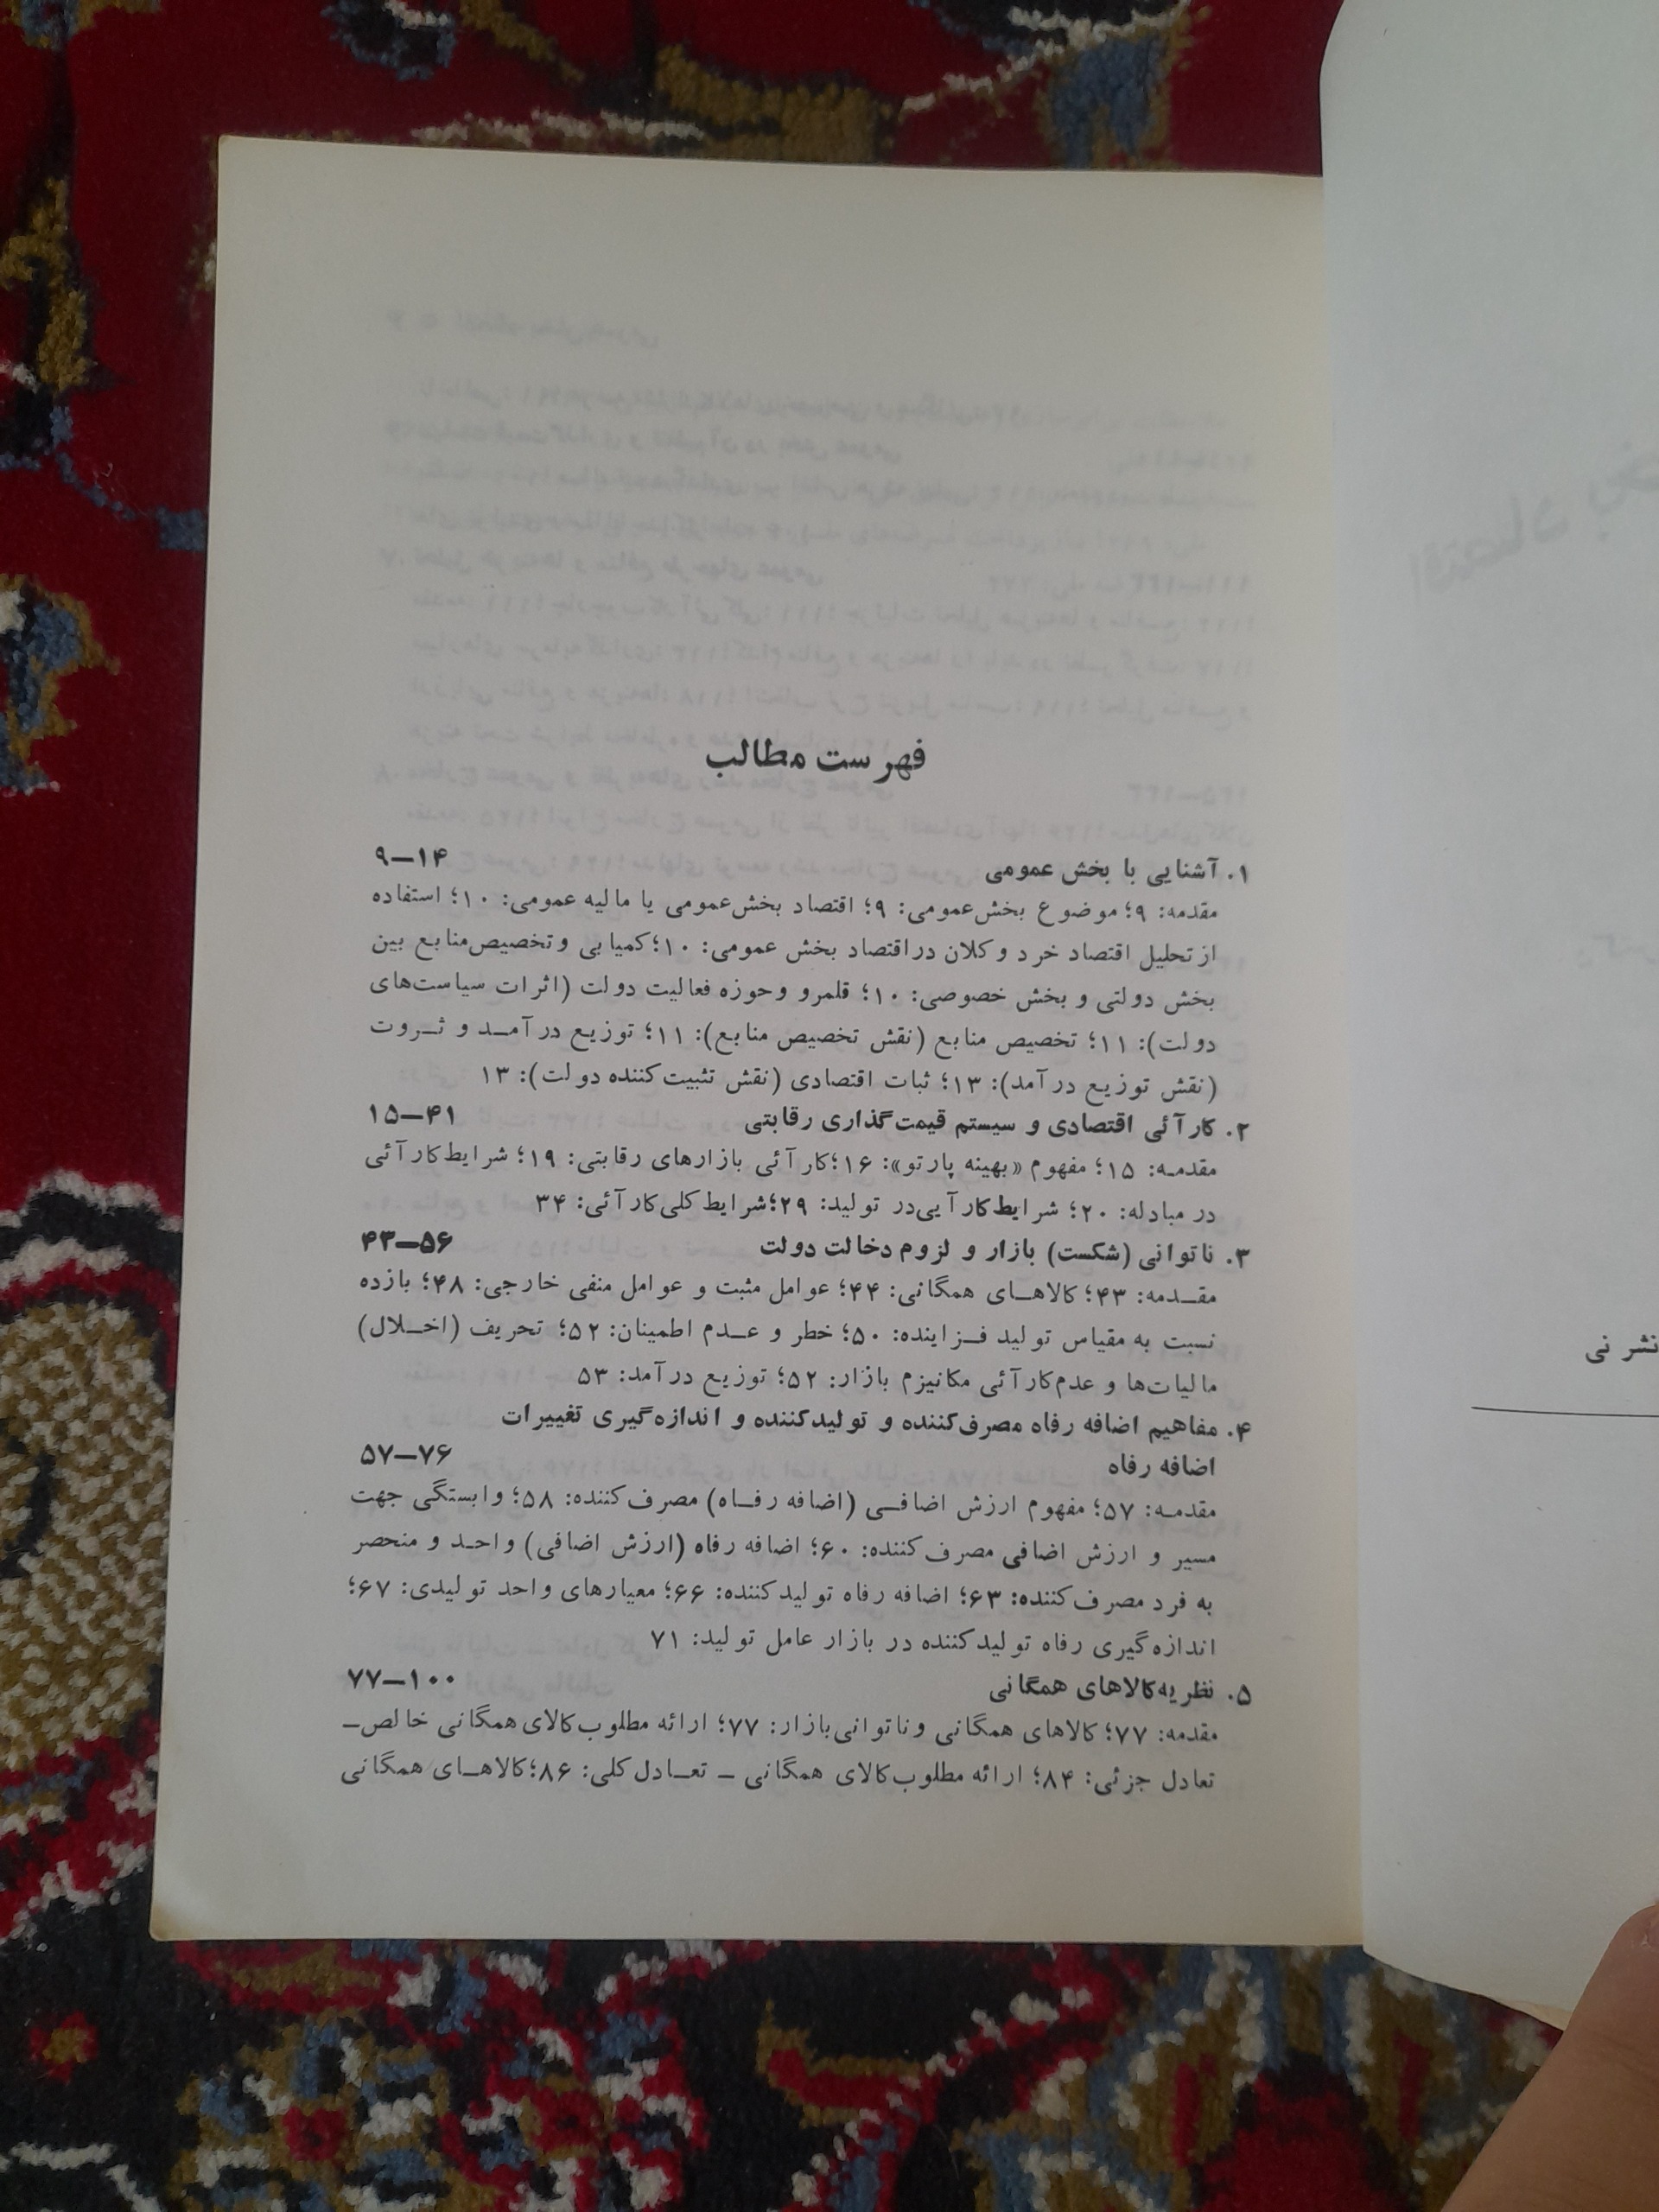 فهرست مطالب
۱. آشنایی با بخش عمومی ۹–۱۴
مقدمه: ۹؛ موضوع بخش‌عمومی: ۹؛ اقتصاد بخش‌عمومی یا مالیه عمومی: ۱۰؛ استفاده
از تحلیل اقتصاد خرد و کلان در اقتصاد بخش عمومی: ۱۰؛ کمیابی و تخصیص منابع بین
بخش دولتی و بخش خصوصی: ۱۰؛ قلمرو و حوزه فعالیت دولت (اثرات سیاست‌های
دولت): ۱۱؛ تخصیص منابع (نقش تخصیص منابع): ۱۱؛ توزیع درآمـد و ثـروت
(نقش توزیع درآمد): ۱۳؛ ثبات اقتصادی (نقش تثبیت‌کننده دولت): ۱۳
۲. کارآئی اقتصادی و سیستم قیمت‌گذاری رقابتی ۱۵–۴۱
مقدمـه: ۱۵؛ مفهوم «بهینه پارتو»: ۱۶؛ کارآئی بازارهای رقابتی: ۱۹؛ شرایط کارآئی
در مبادله: ۲۰؛ شرایط کارآیی در تولید: ۲۹؛ شرایط کلی کارآئی: ۳۴
۳. ناتوانی (شکست) بازار و لزوم دخالت دولت ۴۳–۵۶
مقـدمه: ۴۳؛ کالاهـای همگانی: ۴۴؛ عوامل مثبت و عوامل منفی خارجی: ۴۸؛ بازده
نسبت به مقیاس تولید فـزاینده: ۵۰؛ خطر و عـدم اطمینان: ۵۲؛ تحریف (اخـلال)
مالیات‌ها و عدم کارآئی مکانیزم بازار: ۵۲؛ توزیع درآمد: ۵۳
۴. مفاهیم اضافه رفاه مصرف‌کننده و تولیدکننده و اندازه‌گیری تغییرات
اضافه رفاه ۵۷–۷۶
مقدمـه: ۵۷؛ مفهوم ارزش اضافـی (اضافه رفـاه) مصرف‌کننده: ۵۸؛ وابستگی جهت
مسیر و ارزش اضافی مصرف‌کننده: ۶۰؛ اضافه رفاه (ارزش اضافی) واحـد و منحصر
به فرد مصرف‌کننده: ۶۳؛ اضافه رفاه تولیدکننده: ۶۶؛ معیارهای واحد تولیدی: ۶۷؛
اندازه‌گیری رفاه تولیدکننده در بازار عامل تولید: ۷۱
۵. نظریه کالاهای همگانی ۷۷–۱۰۰
مقدمه: ۷۷؛ کالاهای همگانی و ناتوانی بازار: ۷۷؛ ارائه مطلوب کالای همگانی خالص–
تعادل جزئی: ۸۴؛ ارائه مطلوب کالای همگانی – تعـادل کلی: ۸۶؛ کالاهـای همگانی
نشر نی